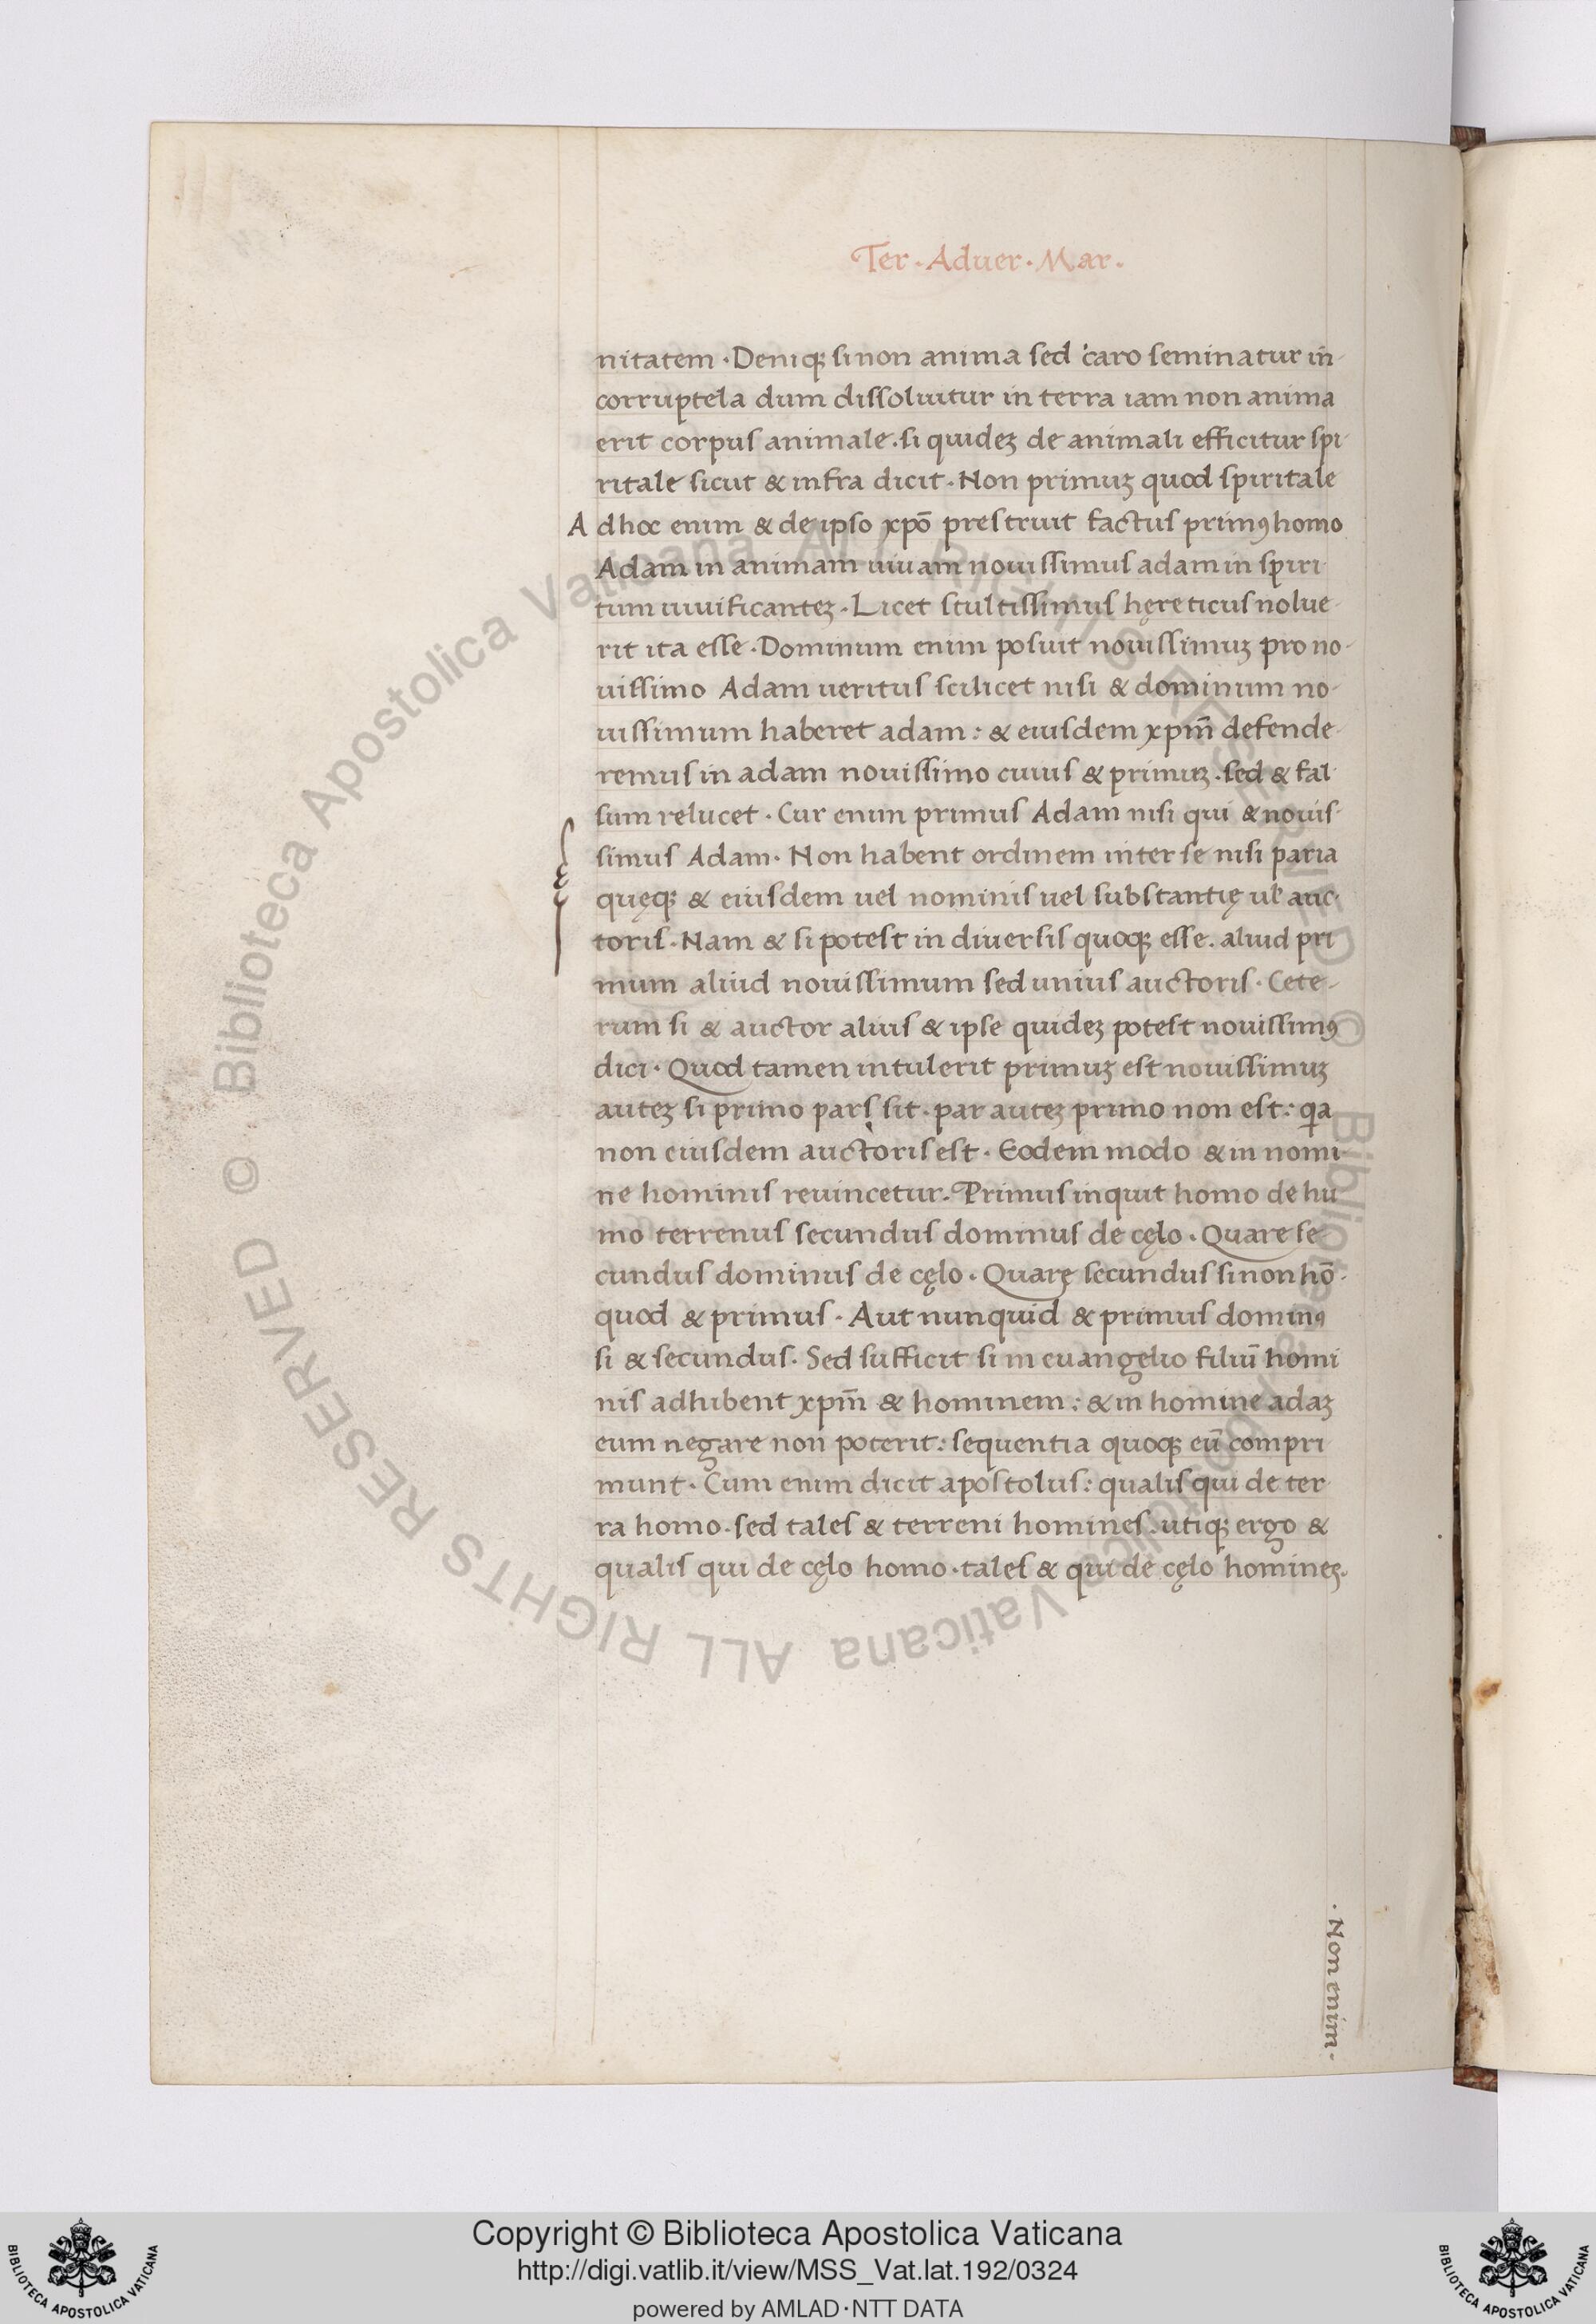 Ter · Aduer · Mar ·
nitatem · Deniqꝫ si non anima sed caro seminatur in
corruptela dum dissoluitur in terra iam non anima
erit corpus animale · si quideꝫ de animali efficitur spi
ritale sicut & infra dicit · Non primuꝫ quod spiritale
A dhoc enim & de ipso xp̄o prestruit factus primꝰ homo
Adam in animam uiuam nouissimus adam in spiri
tum uiuificanteꝫ · Licet stultissimus hęreticus nolue
rit ita esse · Dominum enim posuit nouissimuꝫ pro no-
uissimo Adam ueritus scilicet nisi & dominum no-
uissimum haberet adam : & eiusdem xpm̄ defende
remus in adam nouissimo cuius & primuꝫ · sed & fal
sum relucet · Cur enim primus Adam nisi qui & nouis-
simus Adam · Non habent ordinem inter se nisi paria
quęqꝫ & eiusdem uel nominis uel substantię ul̓ auc-
toris · Nam & si potest in diuersis quoqꝫ esse . aliud pri
mum aliud nouissimum sed unius auctoris · Cete-
rum si & auctor alius & ipse quideꝫ potest nouissimꝰ
dici · Quod tamen intulerit primuꝫ est nouissimuꝫ
auteꝫ si primo pars sit · par auteꝫ primo non est : qa
non eiusdem auctoris est · Eodem modo & in nomi-
ne hominis reuincetur · Primus inquit homo de hu
mo terrenus secundus dominus de cęlo · Quare se
cundus dominus de cęlo · Quarę secundus si non hō ·
quod & primus · Aut nunquid & primus dominꝰ
si & secundus · Sed sufficit si in euangelio filiū homi
nis adhibent xpm̄ & hominem : & in homine adaꝫ
eum negare non poterit : sequentia quoqꝫ eū compri
munt · Cum enim dicit apostolus : qualis qui de ter
ra homo · sed tales & terreni homines . utiqꝫ ergo &
qualis qui de cęlo homo · tales & qui de cęlo homineꝫ ·
· Non enim ·
© Biblioteca Apostolica Vaticana ALL RIGHTS RESERVED © Biblioteca Apostolica Vaticana ALL RIGHTS RESERVED
Copyright © Biblioteca Apostolica Vaticana
http://digi.vatlib.it/view/MSS_Vat.lat.192/0324
powered by AMLAD·NTT DATA
BIBLIOTECA APOSTOLICA VATICANA
BIBLIOTECA APOSTOLICA VATICANA